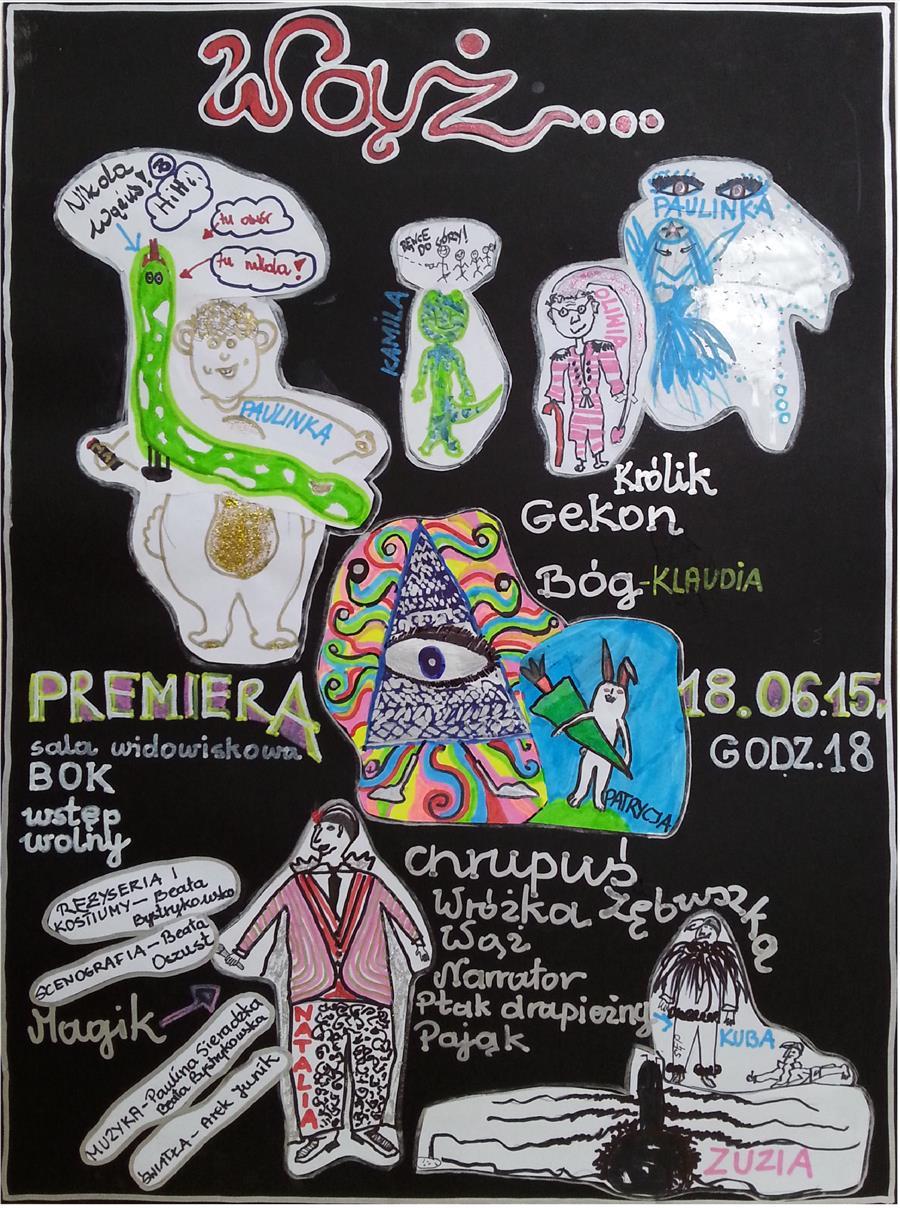 Wąż...
Nikola
Wąż!
HiHi
tu otwór
tu nikola!
RĘCE
DO GÓRY!
KAMILA
OLIWIA
PAULINKA
PAULINKA
Królik
Gekon
Bóg-KLAUDIA
PREMIERA
18.06.15r.
sala widowiskowa
GODZ.18
BOK
wstęp
wolny
PATRYCJA
chrupuś
Wróżka Zębuszka
Wąż
Narrator
Ptak drapieżny
Pająk
REŻYSERIA I
KOSTIUMY-Beata
Bystrykowska
SCENOGRAFIA-Beata
Oszust
Magik
NATALIA
MUZYKA-Paulina Sieradzka
Beata Bystrykowska
ŚWIATŁA-Arek Junik
KUBA
ZUZIA